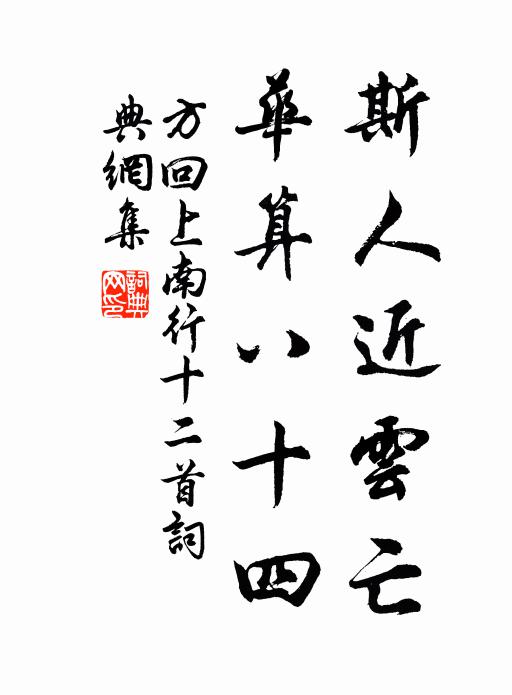 斯人近雲亡
華算八十四
方回上南行十二首詞
典網集
詞典網印